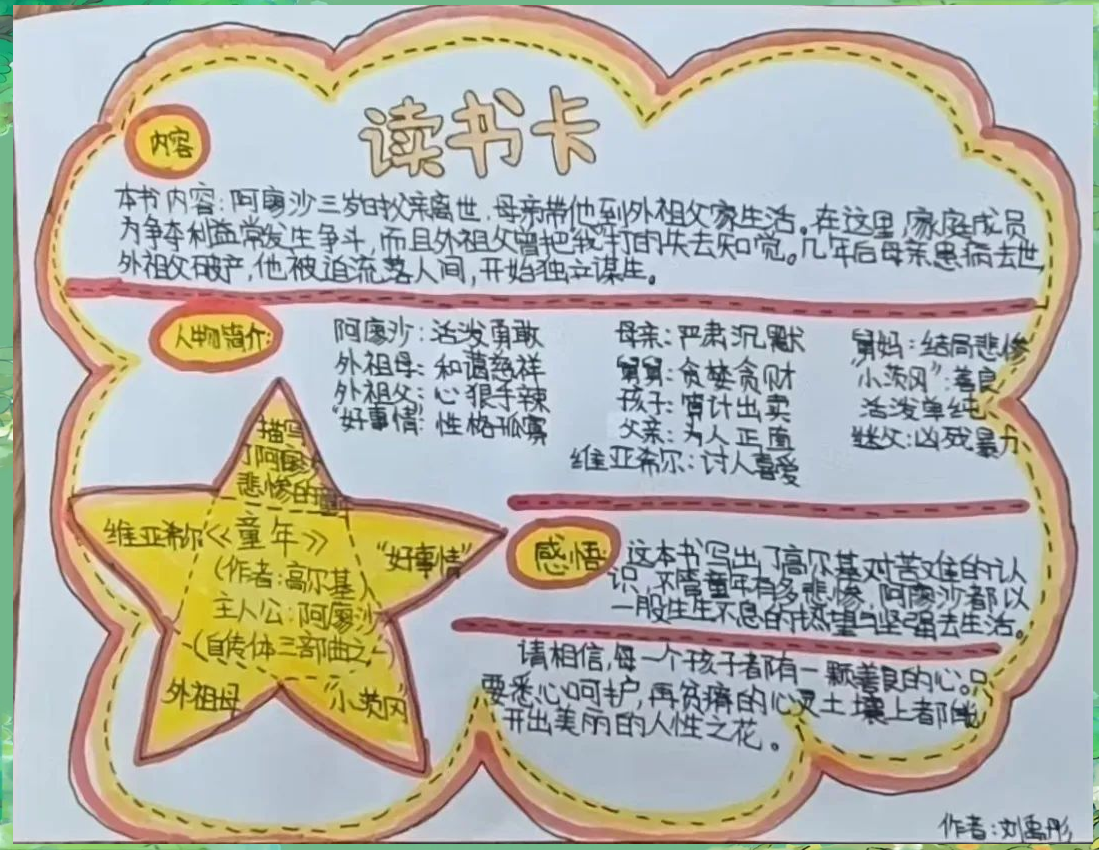 读书卡
内容
本书内容:阿廖沙三岁时父亲离世,母亲带他到外祖父家生活。在这里,家庭成员
为争夺利益常发生争斗,而且外祖父曾把我打的失去知觉。几年后母亲患病去世,
外祖父破产,他被迫流落人间,开始独立谋生。
人物简介:
阿廖沙:活泼勇敢
外祖母:和蔼慈祥
外祖父:心狠手辣
“好事情”:性格孤寡
母亲:严肃沉默
舅舅:贪婪贪财
孩子:算计出卖
父亲:为人正直
维亚希尔:讨人喜爱
舅妈:结局悲惨
“小茨冈”:善良
活泼单纯
继父:凶残暴力
描写
了阿廖沙
悲惨的童
维亚希尔《童年》
“好事情”
(作者:高尔基)
主人公:阿廖沙
(自传体三部曲之一)
外祖母
“小茨冈”
感悟:
这本书写出了高尔基对苦难的认
识,不管童年有多悲惨,阿廖沙都以
一股生生不息的热望与坚强去生活。
请相信,每一个孩子都有一颗善良的心。只
要悉心呵护,再贫瘠的心灵土壤上都能
开出美丽的人性之花。
作者:刘禹彤